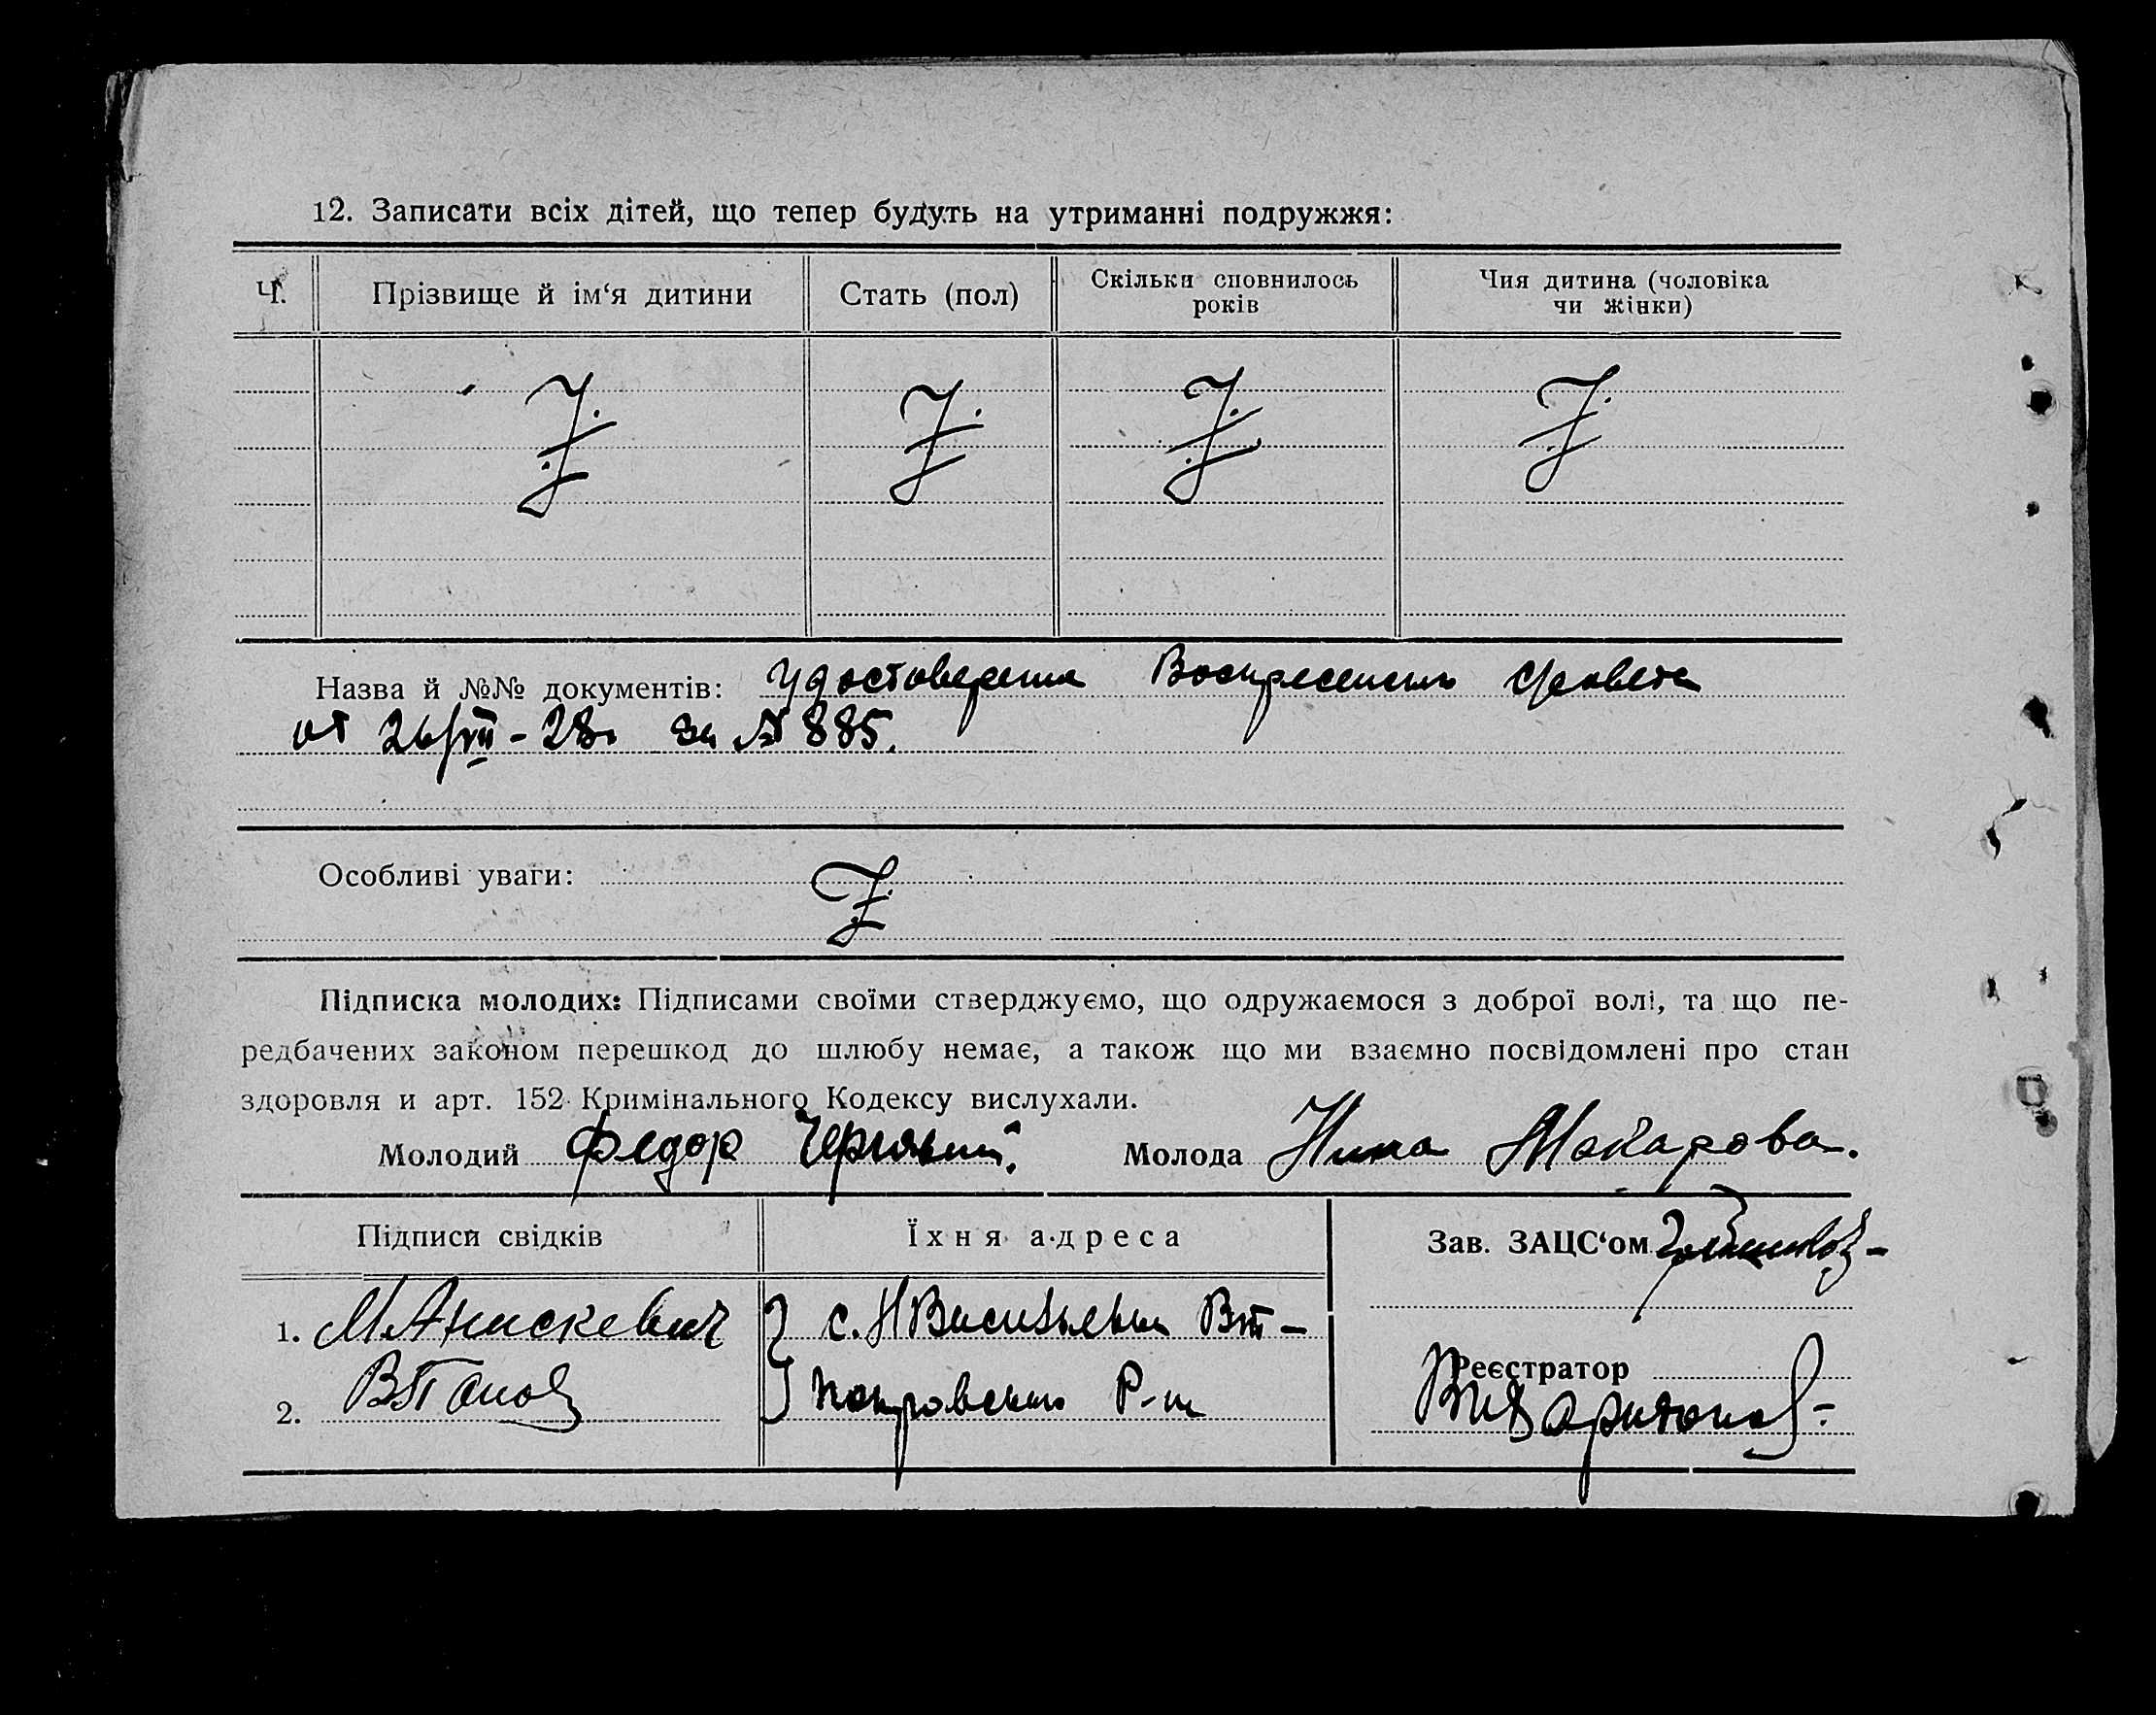 12. Записати всіх дітей, що тепер будуть на утриманні подружжя:
Ч. Прізвище й ім‘я дитини Стать (пол) Скільки сповнилось років Чия дитина (чоловіка чи жінки)
Назва й №№ документів: Удостоверения Воскресенск с/совета
от 26/VII-28г за № 885.
Особливі уваги:
Підписка молодих: Підписами своїми стверджуємо, що одружаємося з доброї волі, та що пе-
редбачених законом перешкод до шлюбу немає, а також що ми взаємно посвідомлені про стан
здоровля и арт. 152 Кримінального Кодексу вислухали.
Молодий Федор Молода Нина Макарова.
Підписи свідків Їхня адреса Зав. ЗАЦС‘ом
1. М.Анискевич с. Н Васильевка
Реєстратор
2. В Попов Покровского Р-на